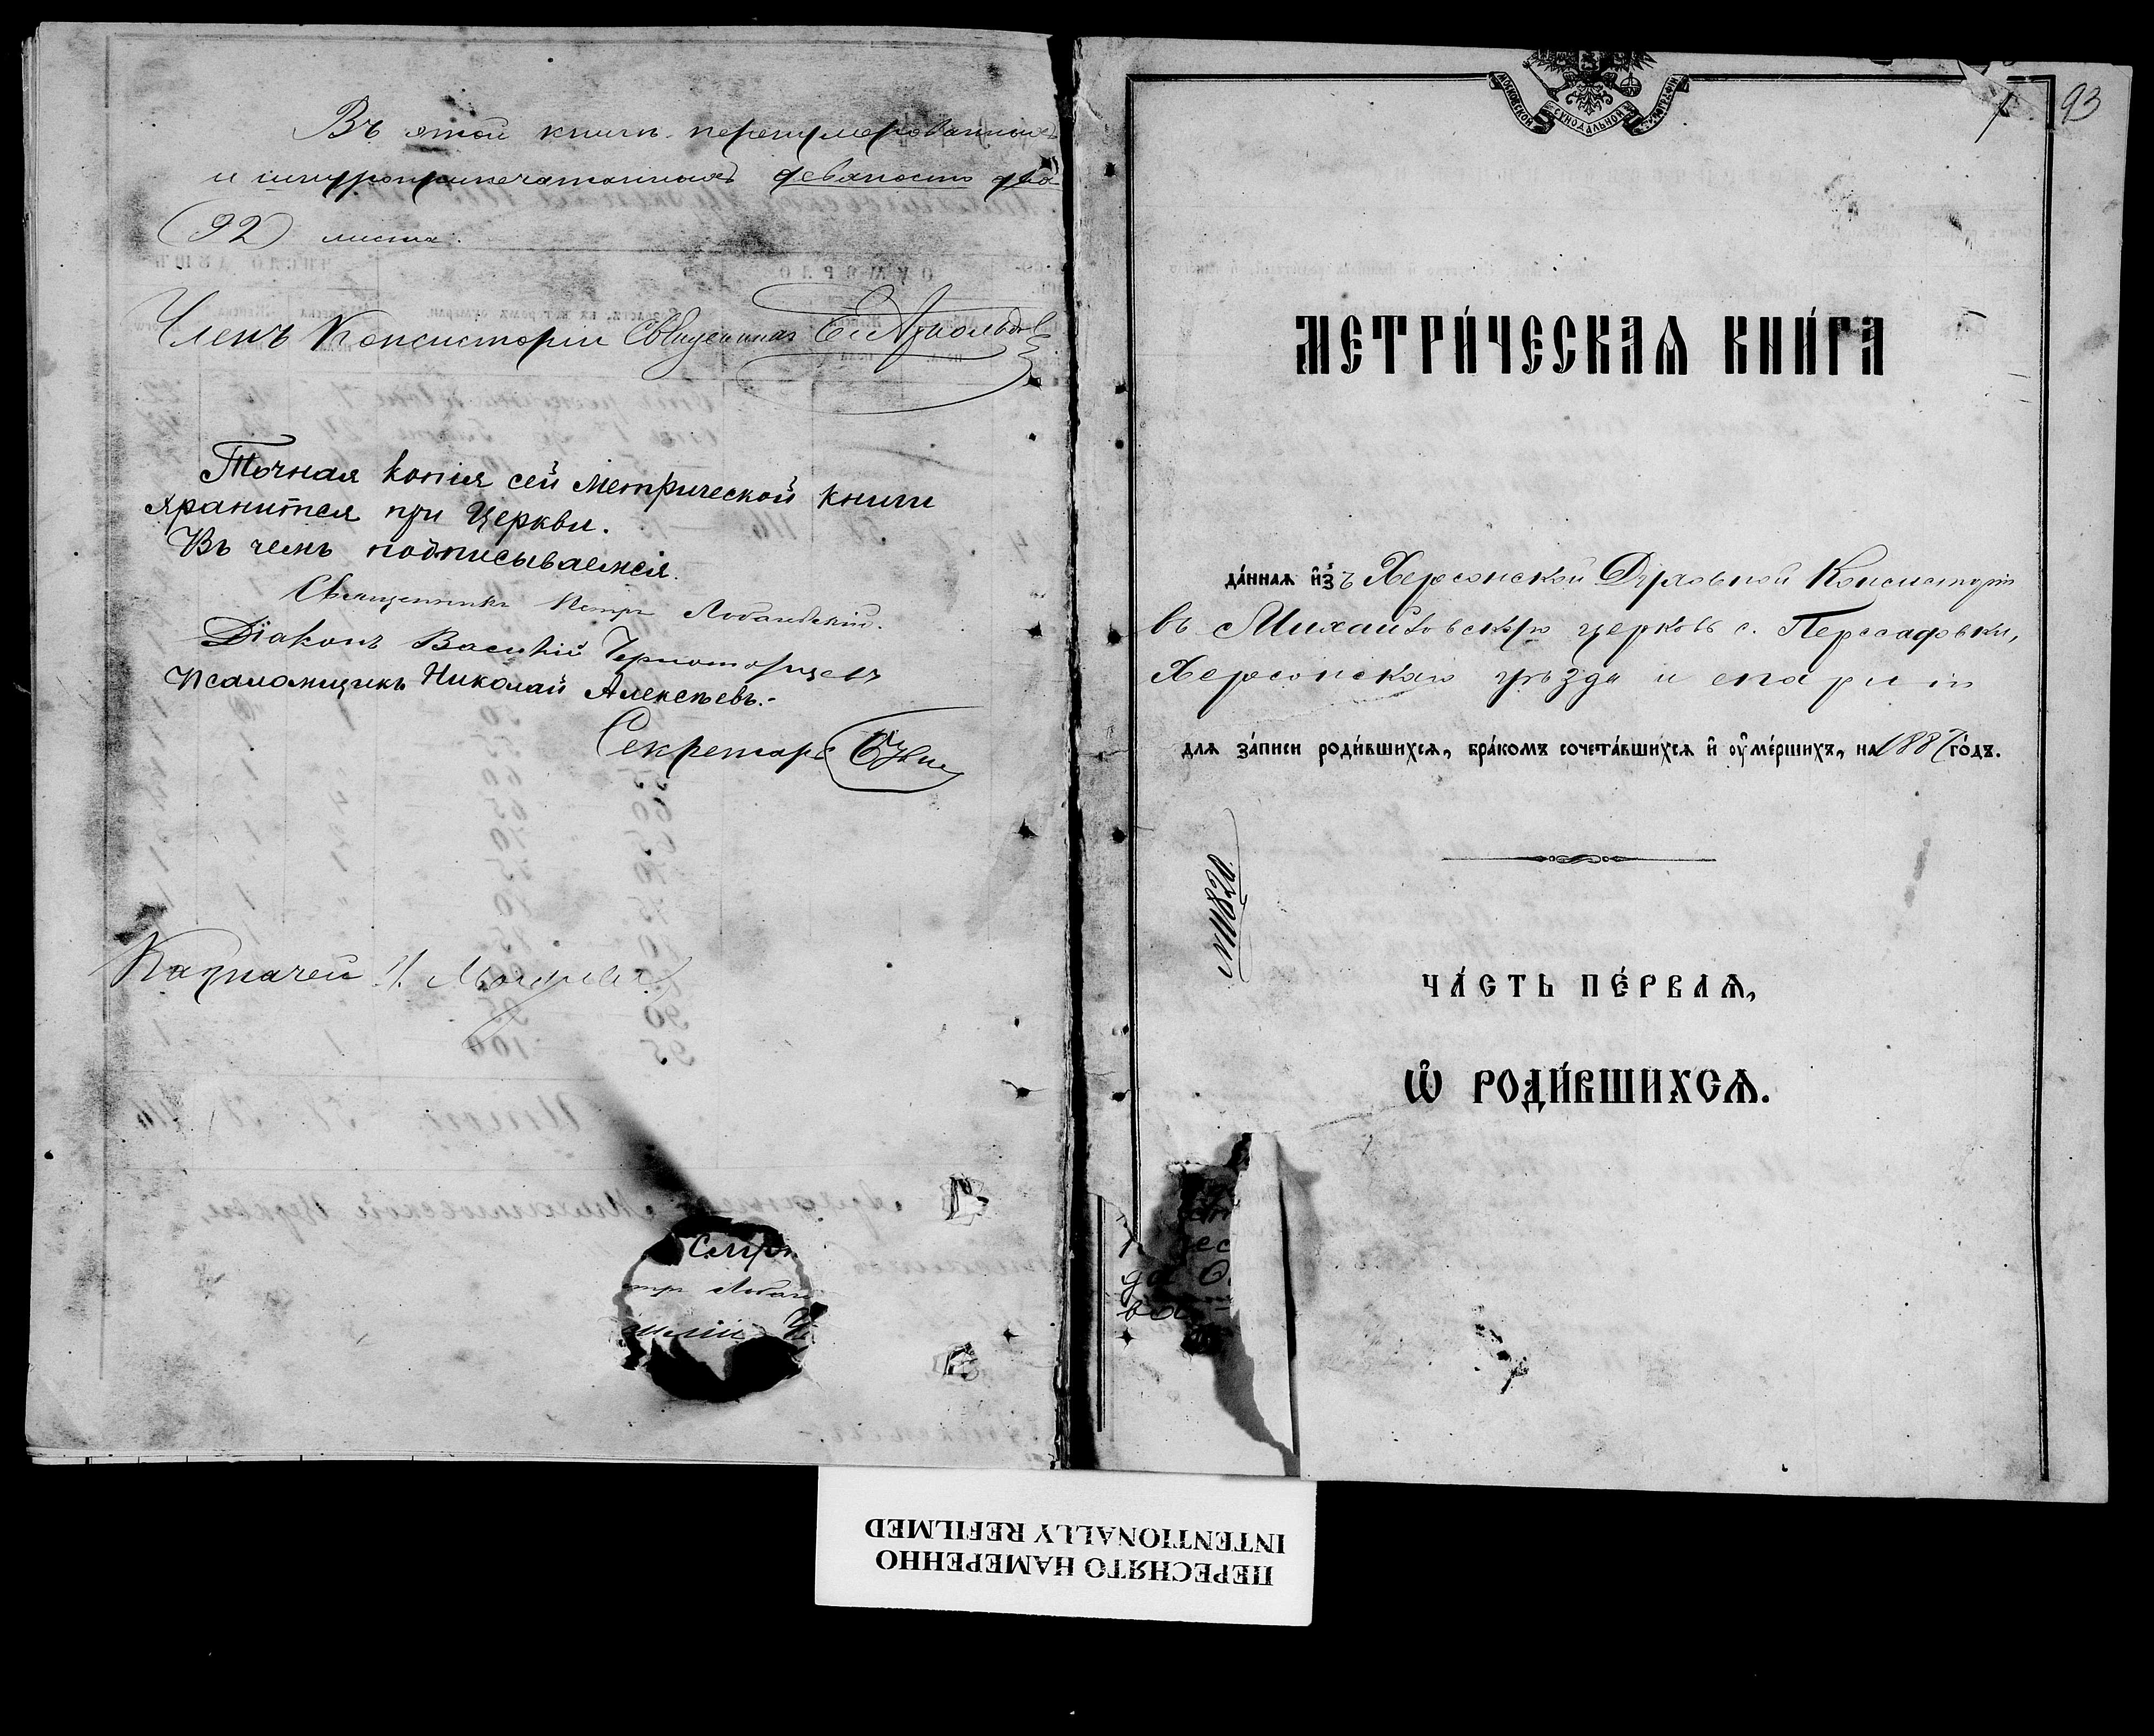 Въ этой книгѣ перенумерованныхъ
и шнуроприпечатанныхъ девяносто два
(92) листа.
Членъ Консисторіи Священникъ
Точная копія сей метрической книги
хранится при Церкви.
Въ чемъ подписываемся.
Священникъ Петръ
Діаконъ Василій Черноморцевъ
Псаломщикъ Николай Алексѣевъ.-
Секретарь
Казначей
93
1
МОСКОВСКОЙ СѴНОДАЛЬНОЙ ТѴПОГРАФІИ
МЕТРИ́ЧЕСКАѦ КНИ́ГА
да́нная и҆зъ Херсонской Духовной Консисторіи
въ Михайловскую церковь с. Пересадовки,
Херсонскаго уѣзда и епархіи
для за́писи роди́вшихся, бра́комъ сочета́вшихся и҆ ᲂу҆ме́ршихъ, на 1887 го́дъ.
№11820
ЧА́СТЬ ПЕ́РВАѦ,
Ѽ РОДИ́ВШИХСѦ.
ПЕРЕСНЯТО НАМЕРЕННО
INTENTIONALLY REFILMED